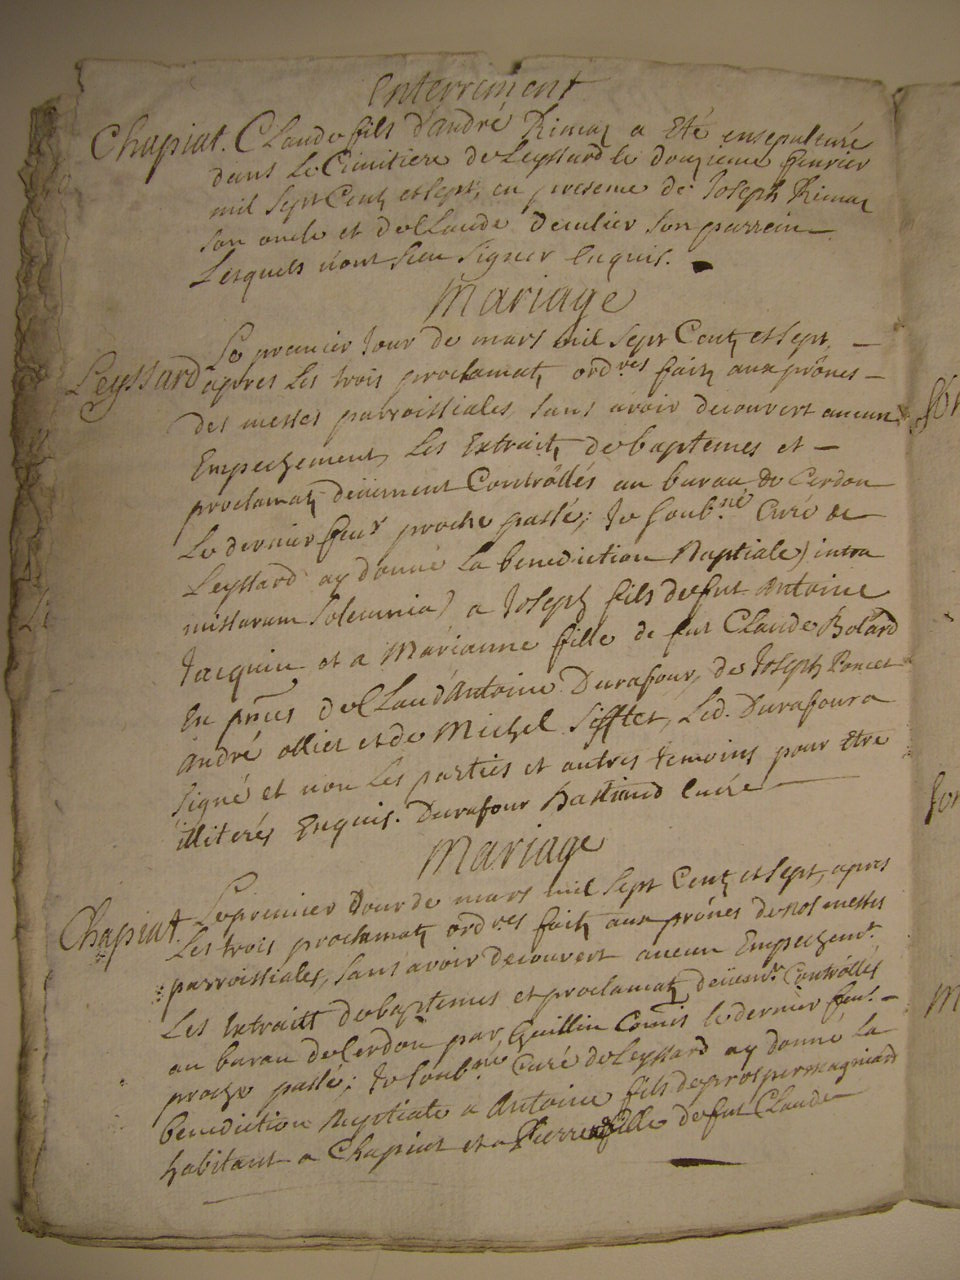 Enterrement
Chapiat. Claude fils d'andré Rimaz a Eté ensepulturé
dans Le Cimitiere de Leyssard le douzieme feurier
mil Sept Centz et sept, en presence de Joseph Rimaz
son oncle et de Claude Deculier son parrein
Lesquels n'ont sceu signer Enquis.
Mariage
Le premier Jour de mars mil sept Centz et sept,
Leyssard apres Les trois proclamatz ordres faitz aux prônes
des messes parroissiales sans avoir decouvert aucun
Empechement, Les Extraitz de baptemes et
proclamatz deüement Contrôllés au bureau de Cerdon
Le dernier feur proche passé; Je soubné Curé de
Leyssard ay donné La benediction Nuptiale) intra
missarum solemnia) a Joseph fils de fut Antoine
Jacquin et a Marianne fille de fut Claude Bolard
En pnces de Claud'Antoine Durafour, de Joseph Poncet
andré ollier et de Michel Sifflet, Led. Durafour a
signé et non Les parties et autres temoins pour Etre
illiterés Enquis. Durafour Bastiand curé
Mariage
Chapiat. Le premier Jour de mars mil Sept Centz et sept, apres
Les trois proclamatz ordres faitz aux prônes de nos messes
parroissiales, sans avoir decouvert aucun Empechemt,
Les Extraitz de baptemes et proclamatz deüemt Contrôllés
au bureau de Cerdon par Guillin Comis le dernier feur.
proche passé; Je soubné Curé de Leyssard ay donné la
benediction Nuptiale a Antoine fils de prosper magniard
habitant a Chapiat et a Pierre fille de fut Claude